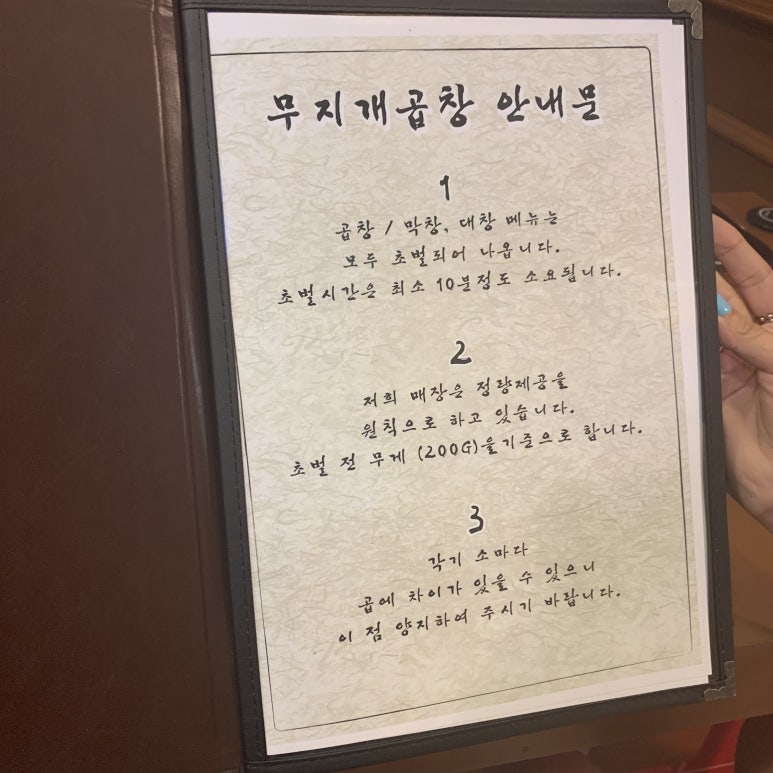 무지개곱창 안내문
1
곱창 / 막창, 대창 메뉴는
모두 초벌되어 나옵니다.
초벌시간은 최소 10분정도 소요됩니다.
2
저희 매장은 정량제공을
원칙으로 하고 있습니다.
초벌 전 무게 (200G)을기준으로 합니다.
3
각기 소마다
곱에 차이가 있을 수 있으니
이 점 양지하여 주시기 바랍니다.